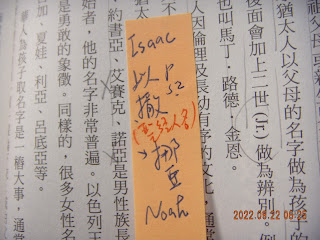 猶太人以父母的名字做為孩子的
後面會加上二世(Jr.)做為辨別。例
也叫馬丁‧路德‧金恩。
人因倫理及長幼有序的文化，通
Isaac
以人P
撒52
(聖經人名)
挪亞
Noah
約書亞、艾賽克、諾亞是男性族長
始者，他的名字非常普遍。以色列王
是勇敢的象徵。同樣的，很多女性名
加、夏娃、利亞、呂底亞等。
華人為孩子取名字是一樁大事，通常